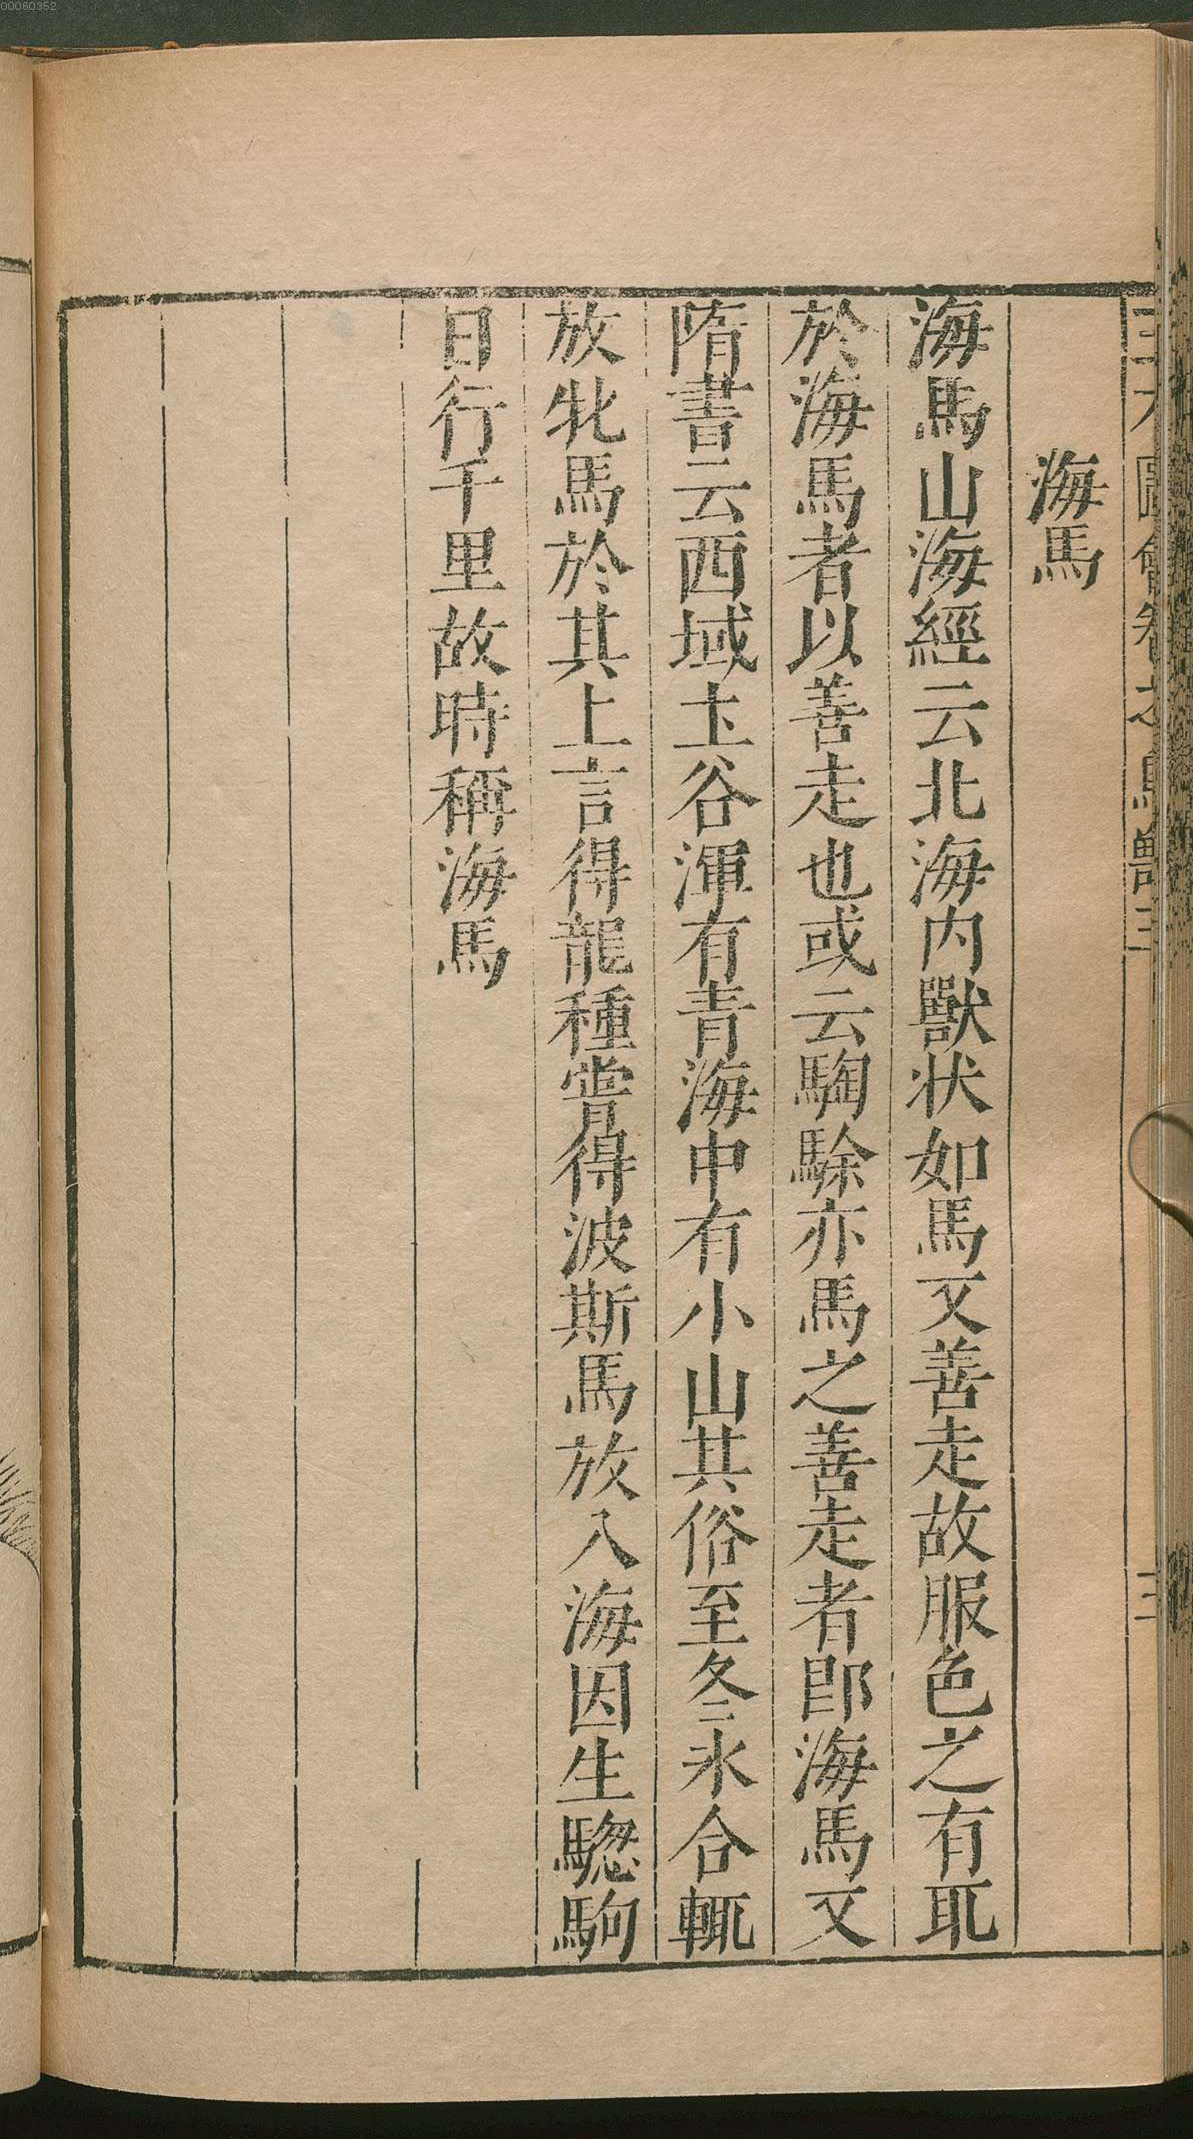 00060352
海馬
海馬山海經云北海内獸状如馬又善走故服色之有取
於海馬者以善走也或云騊駼亦馬之善走者即海馬又
隋書云西域𡈽谷渾有青海中有小山其俗至冬氷合輒
放牝馬於其上言得龍種嘗得波斯馬放入海因生驄駒
日行千里故時稱海馬